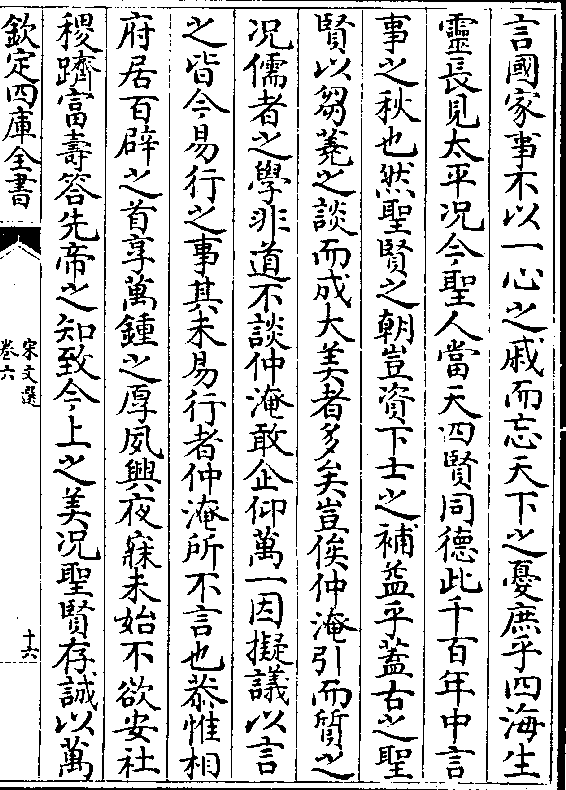 言國家事不以一心之戚而忘天下之憂庶乎四海生
靈長見太平况今聖人當天四賢同德此千百年中言
事之秋也然聖賢之朝豈資下士之補益乎蓋古之聖
賢以芻蕘之談而成大美者多矣豈俟仲淹引而質之
况儒者之學非道不談仲淹敢企仰萬一因擬議以言
之皆今易行之事其未易行者仲淹所不言也恭惟相
府居百辟之首享萬鍾之厚夙興夜寐未始不欲安社
稷躋富壽答先帝之知致今上之美况聖賢存誠以萬
欽定四庫全書
宋文選
卷六
十六